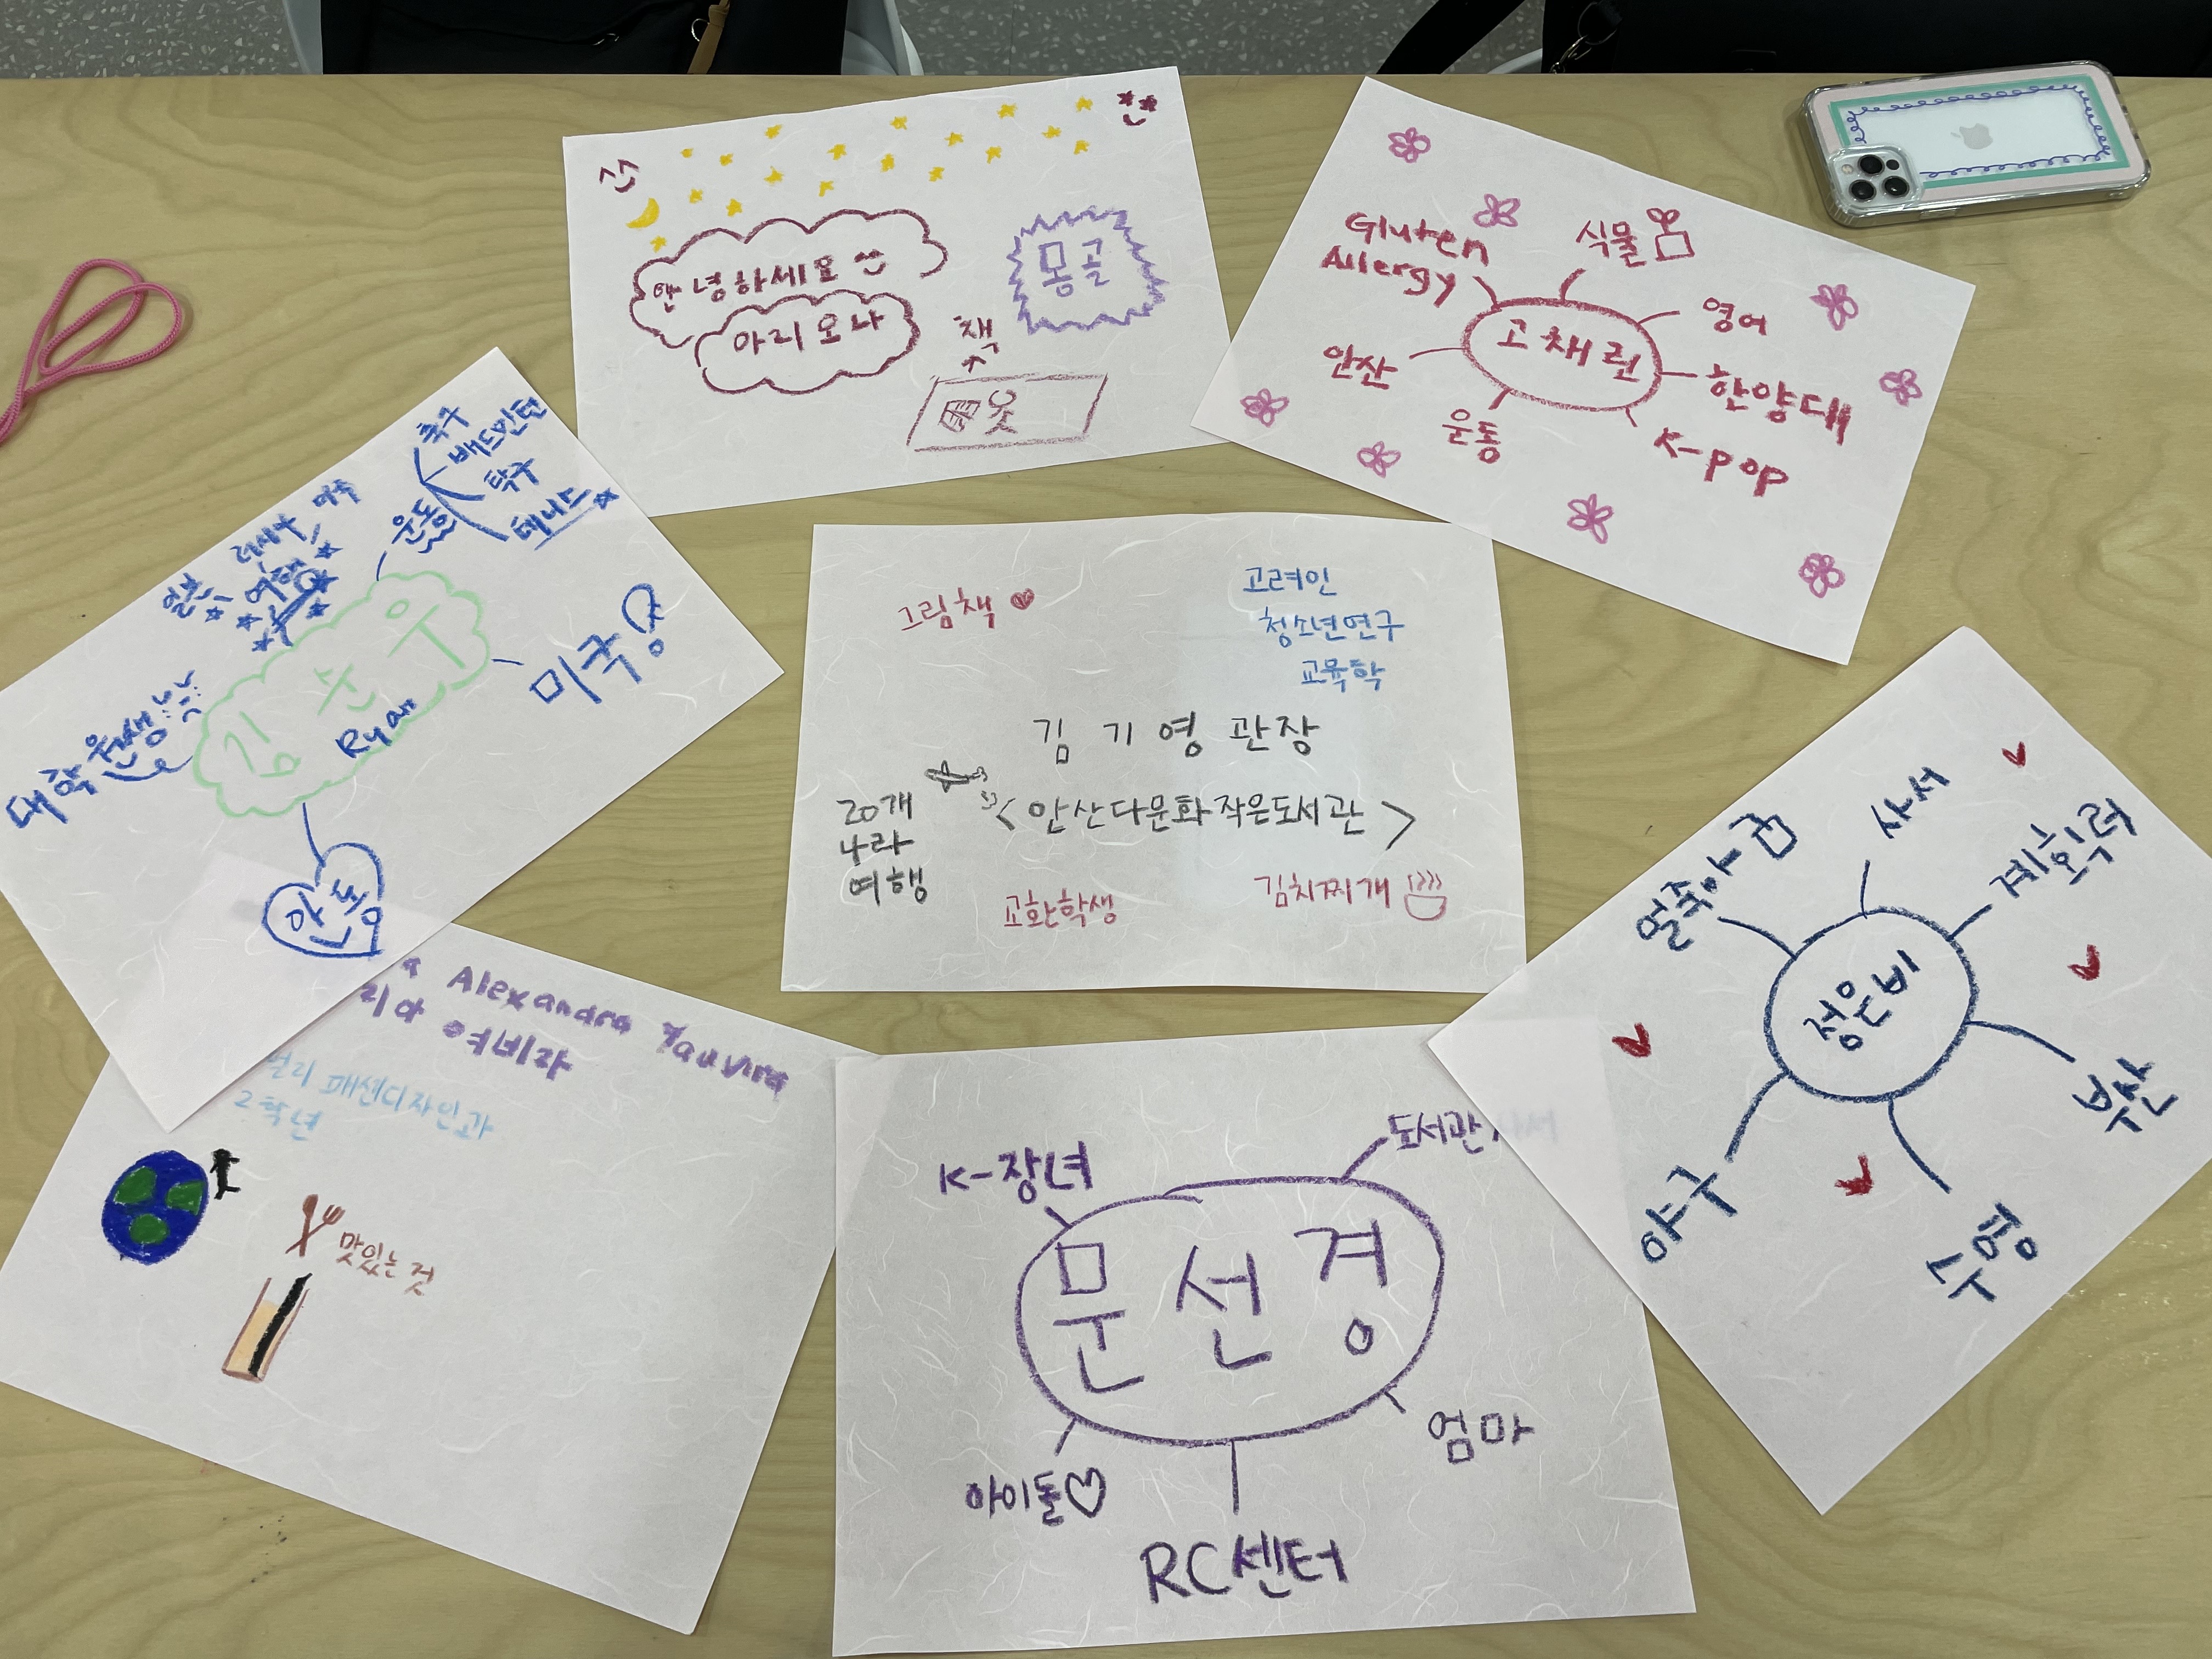 안녕하세요
아리오나
몽골
책
옷
Gluten
Allergy
식물
영어
고채린
안산
한양대
운동
K-pop
축구
배드민턴
탁구
테니스
운동
미국
러시아
일본
여행
김 준 우
Ryan
미국
대학원생
안동
그림책
고려인
청소년연구
교육학
김 기 영 관장
<안산다문화작은도서관>
20개
나라
여행
교환학생
김치찌개
사서
계획력
얼죽아
정은비
부산
수영
야구
a Alexandra Yauvira
리아 여비자
얼리 패션디자인과
2학년
맛있는 것
K-장녀
도서관 사서
문선경
엄마
아이돌
RC센터